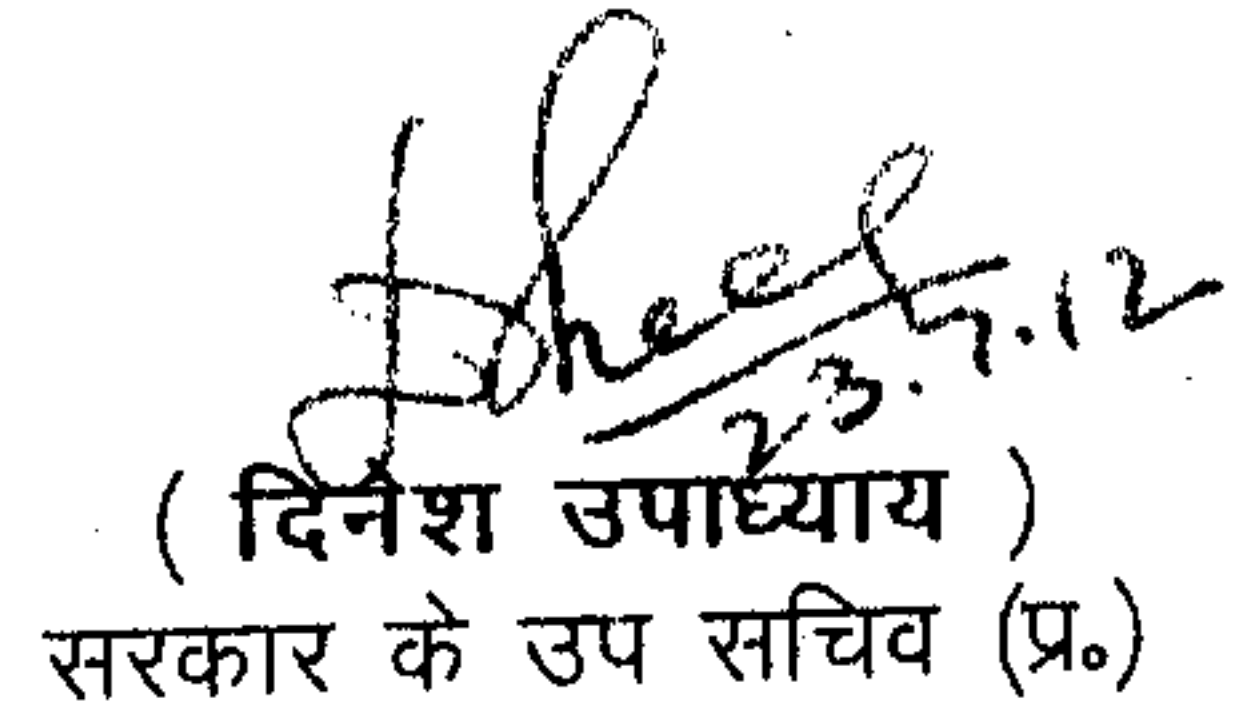 23.7.12
( दिनेश उपाध्याय )
सरकार के उप सचिव (प्र०)